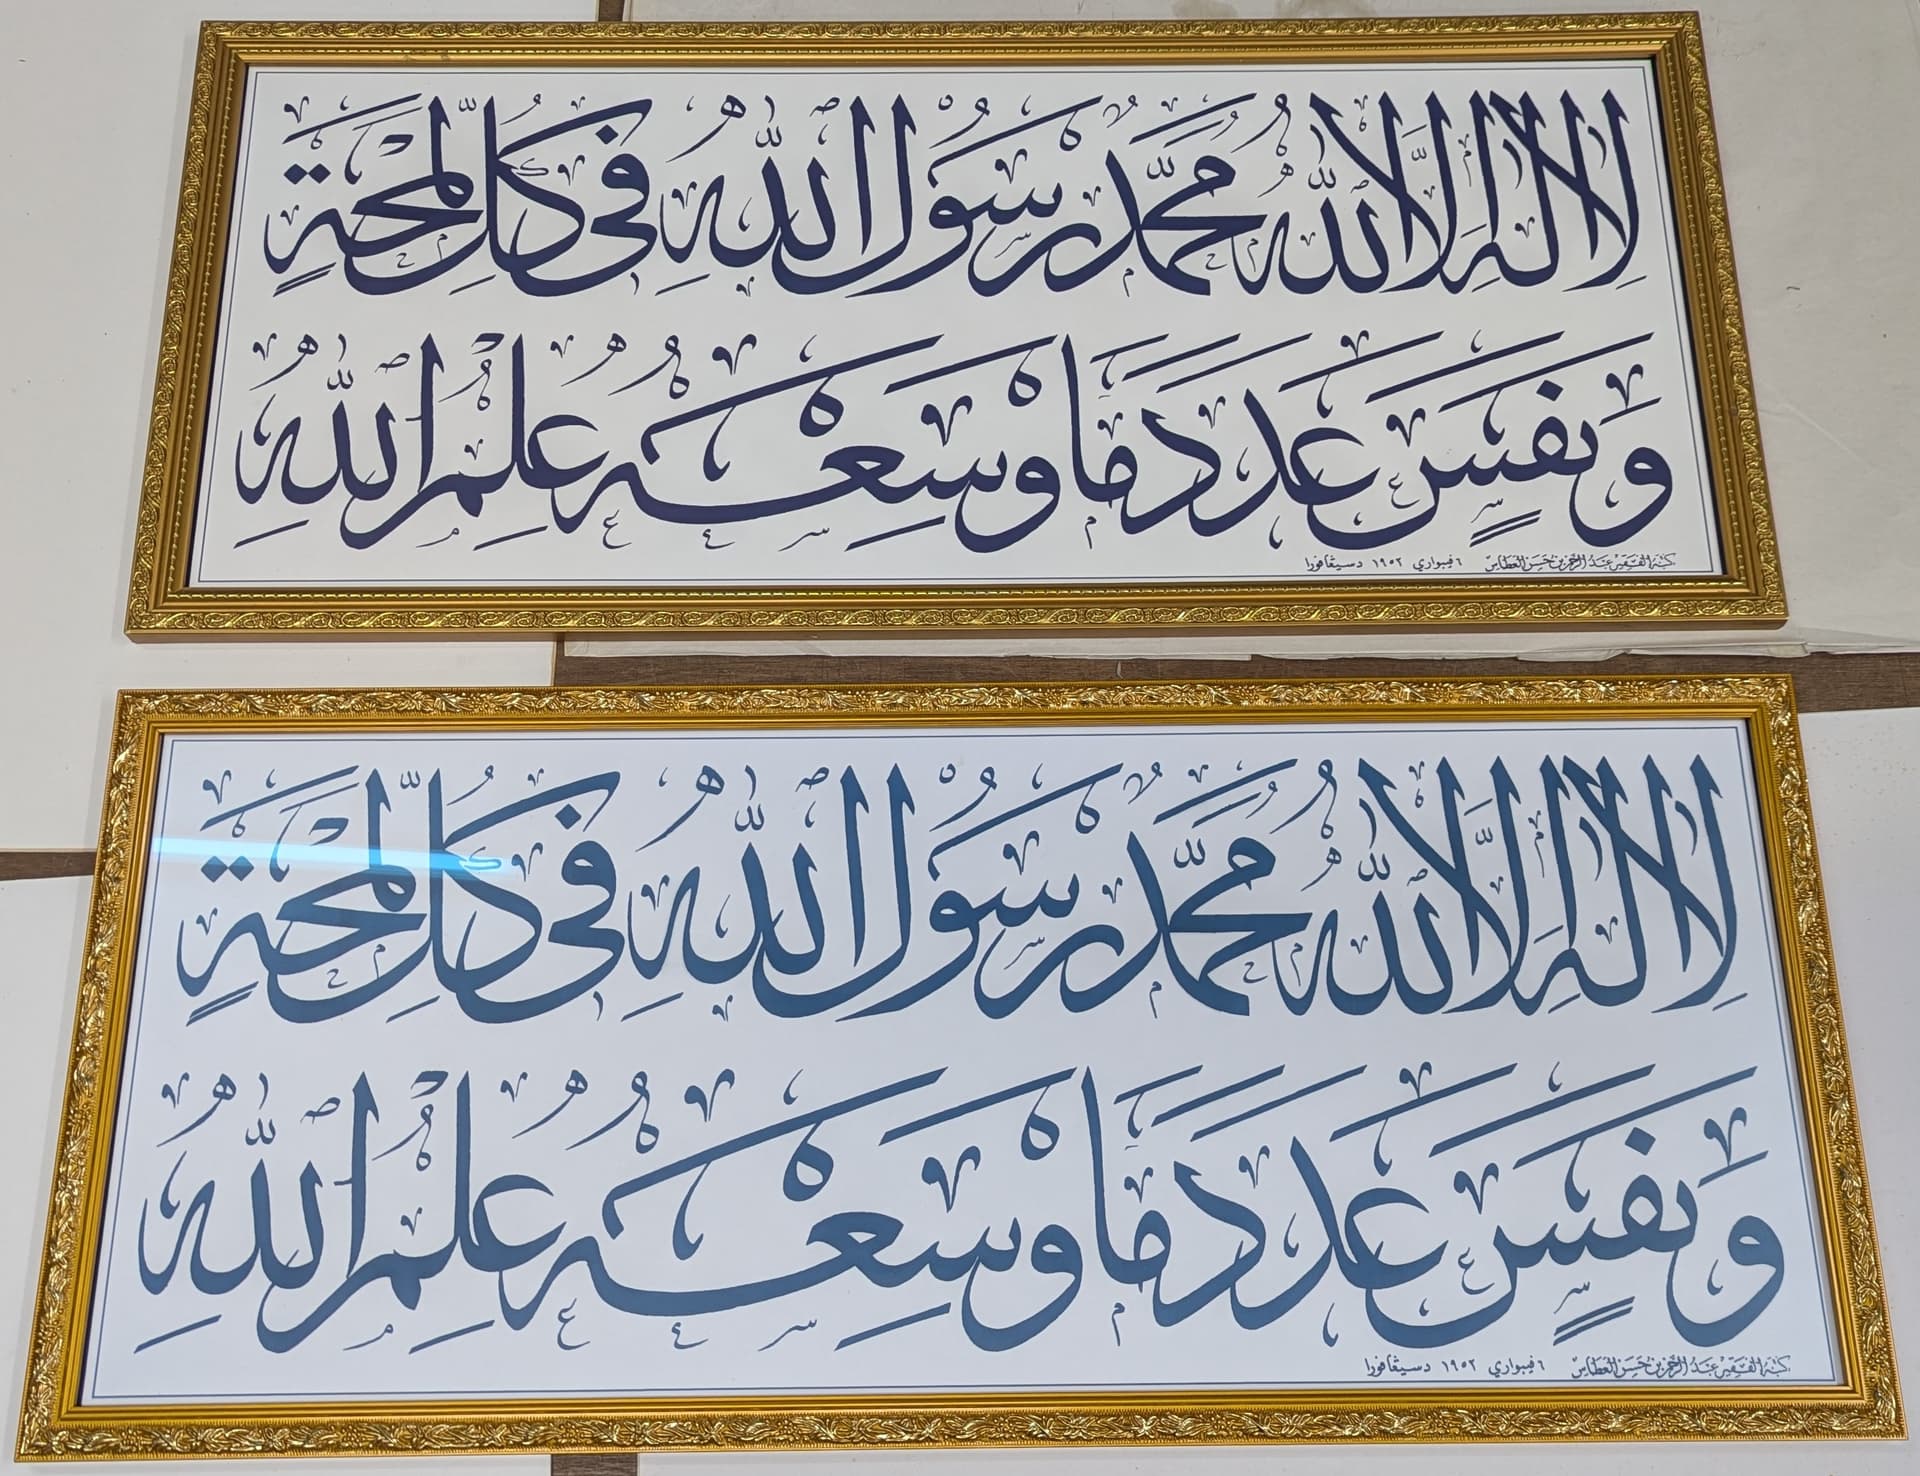 لَا إِلٰهَ إِلَّا اللهُ مُحَمَّدٌ رَسُوْلُ اللهِ فِي كُلِّ لَمْحَةٍ
وَنَفَسٍ عَدَدَ مَا وَسِعَهُ عِلْمُ اللهِ
كتبه الفقير عبد الرحمن بن حسن العطاس ٦ فيبواري ١٩٥٢ دسيڠافورا
لَا إِلٰهَ إِلَّا اللهُ مُحَمَّدٌ رَسُوْلُ اللهِ فِي كُلِّ لَمْحَةٍ
وَنَفَسٍ عَدَدَ مَا وَسِعَهُ عِلْمُ اللهِ
كتبه الفقير عبد الرحمن بن حسن العطاس ٦ فيبواري ١٩٥٢ دسيڠافورا